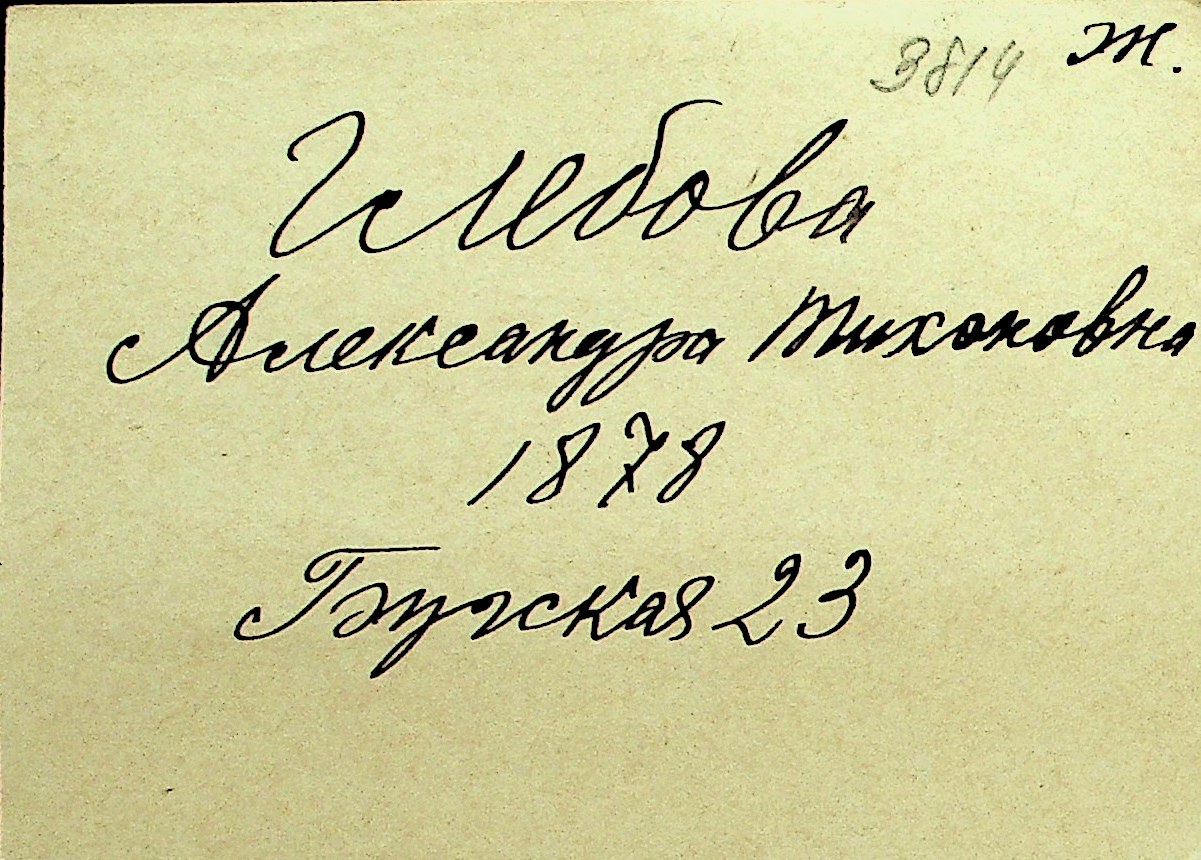 3814 ж.
Глебова
Александра Тихоновна
1878
Бугская 23